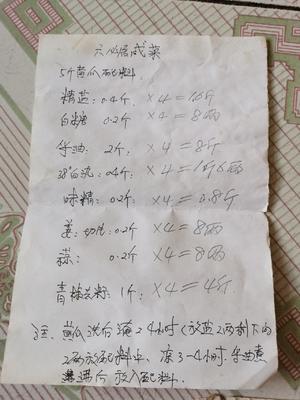 六必居咸菜
5斤黄瓜配料.
精盐: 0.4斤, ×4=1.6斤
白糖 0.2斤 ×4=8两
生油: 2斤, ×4=8斤
38°白酒: 0.4斤, ×4=1斤6两
味精: 0.2斤, ×4=0.8斤
姜: 切片: 0.2斤 ×4=8两
蒜: 0.2斤 ×4=8两
青椒 1斤, ×4=4斤.
注: 黄瓜洗后淹24小时(放盐2两剩下的
2两放配料中, 凉3-4小时. 生油煮
沸后放入配料.